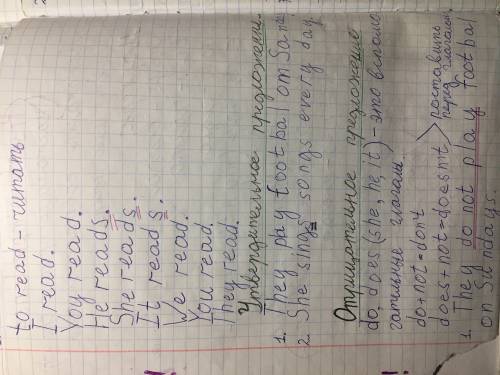 to read - читать
I read.
Yoy read.
He reads.
She reads.
It reads.
We read.
You read.
They read.
Утвердительное предложение.
1. They pay footbal on
2. She sings songs every day
Отрицательное предложение
do, does (she, he, it) - это вспомо
гательные глаголы.
do + not = don't
does + not = doesn't > поставить
перед глаголом
1. They do not play footbal
on Sundays.